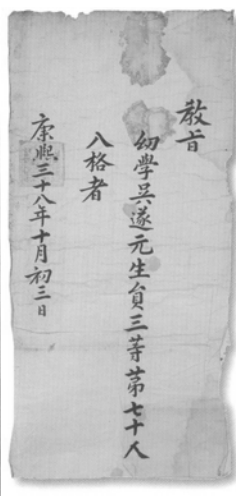 敎旨
幼學吳遂元生員三等第七十人
入格者
康熙三十八年十月初三日